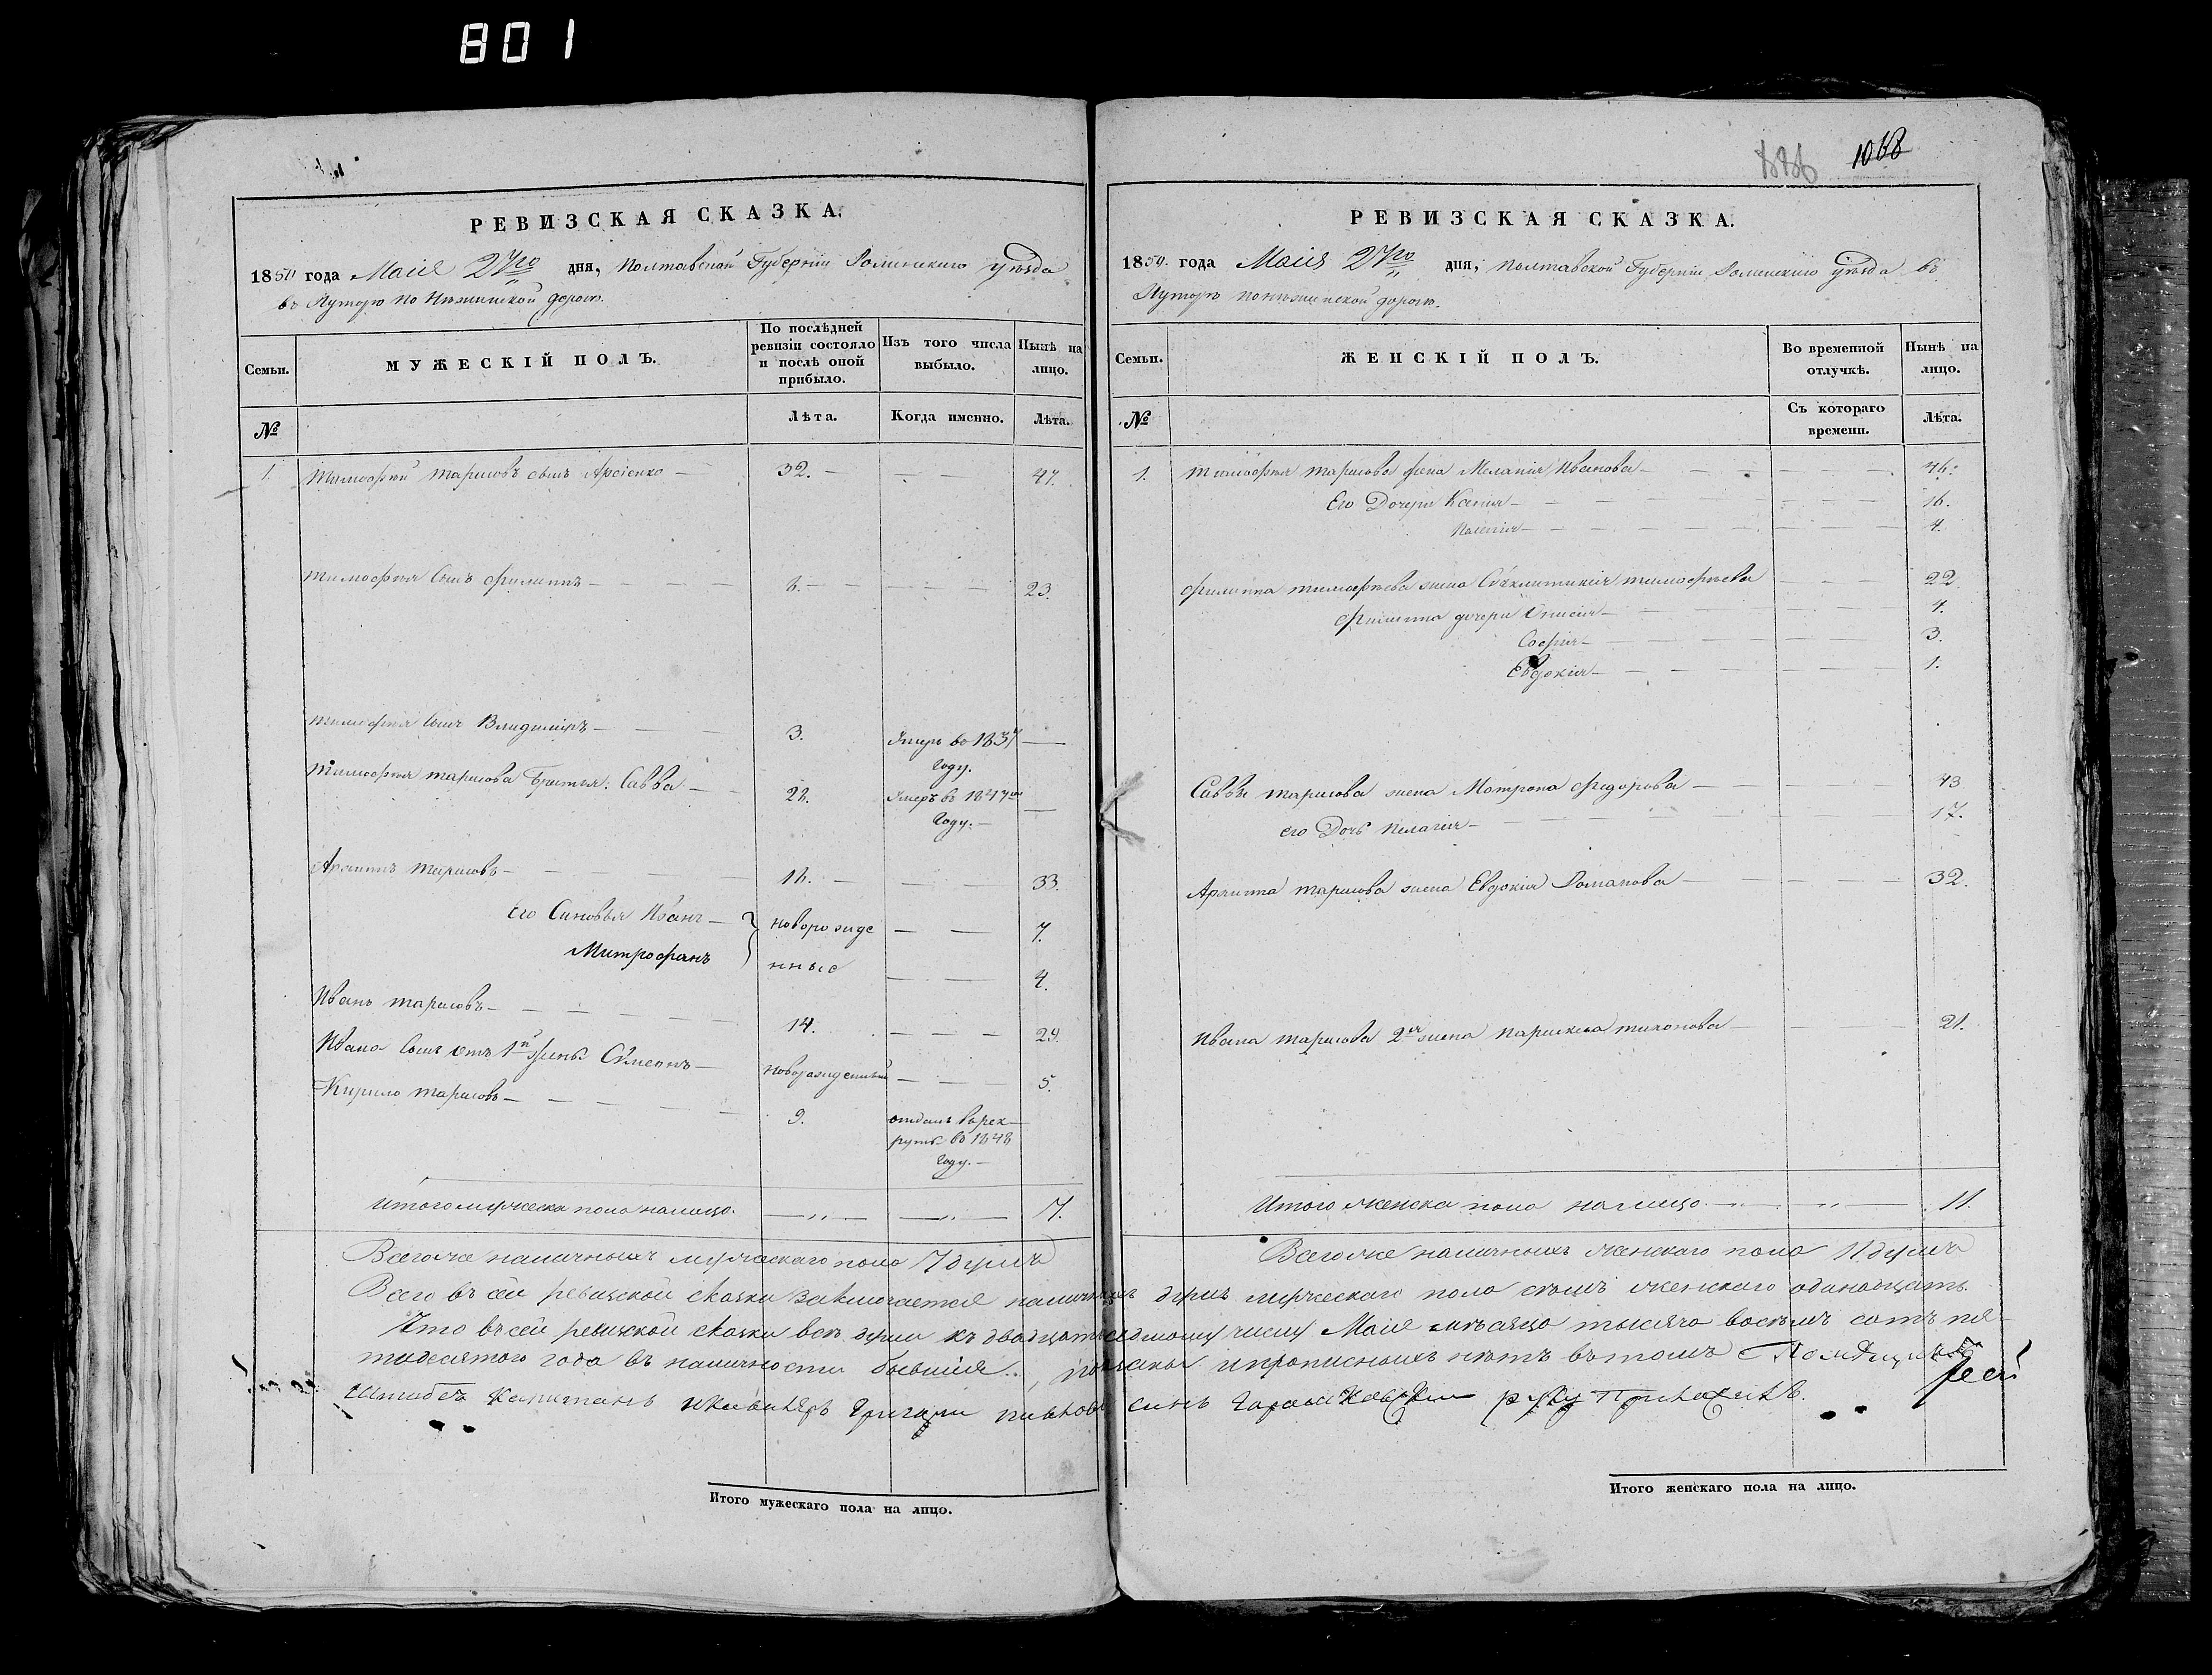 801
1068
РЕВИЗСКАЯ СКАЗКА.
1850 года Маія 27го дня, Полтавской Губерніи Роменскаго уѣзда
въ Хуторѣ по Нѣжинской дорогѣ.
Семьи.
МУЖЕСКІЙ ПОЛЪ.
По послѣдней ревизіи состояло и послѣ оной прибыло.
Изъ того числа выбыло.
Нынѣ на лицо.
№
Лѣта.
Когда именно.
Лѣта.
1. Тимофей Тарасовъ сынъ Арсіенко — 32. — — — 47.
Тимофея Сынъ Филиппъ — 8. — — — 23.
Тимофея Сынъ Владимиръ — 3. Умеръ въ 1837 Году. —
Тимофея Тарасова Братья. Савва — 28. Умеръ въ 1847м Году. — —
Архипъ Тарасовъ — 18. — — — 33.
Его Сыновья Иванъ — новорожде — — 7.
Митрофанъ нные — — 4.
Иванъ Тарасовъ — 14. — — — 29.
Ивана Сынъ отъ 1й жены Симеонъ — новорожденный — — 5.
Кирило Тарасовъ — 9. отданъ въ рек-
руты въ 1848
Году. —
Итого мужеска пола налицо. — „ — — „ — 7.
Всего же наличныхъ мужескаго пола 7 душъ
РЕВИЗСКАЯ СКАЗКА.
1850. года Маія 27го дня, Полтавской Губерніи Роменскаго уѣзда въ
Хуторѣ по нѣжинской дорогѣ.
Семьи.
ЖЕНСКІЙ ПОЛЪ.
Во временной отлучкѣ.
Нынѣ на лицо.
№
Съ котораго времени.
Лѣта.
1. Тимофея Тарасова жена Меланія Иванова — 46.
Его Дочери Ксенія — 16.
4.
Филиппа Тимофеева жена Тимофеева 22
Филиппа дочери Анисія — 4.
Софія — 3.
Евдокія — 1.
Саввы Тарасова жена Мотрона Федорова — 43
его Дочь Пелагія — 17.
Архипа Тарасова жена Евдокія Романова — 32.
Ивана Тарасова 2я жена Параскева Тихонова — 21.
Итого женска пола налицо. — „ — 11.
Всего же наличныхъ женскаго пола 11 душъ
Всего въ сей ревизской сказки заключается наличныхъ душъ мужескаго пола семь женскаго одинацать.
Что въ сей ревизской сказки всѣ души къ двадцать седьмому числу Маія мѣсяцо тысяча восемь сотъ пя-
тидесятого года въ наличности бывшія показаны и прописныхъ нѣтъ въ томъ
Штабсъ Капитанъ и Кавалеръ Григорій сынъ руку приложилъ.
Итого мужескаго пола на лицо.
Итого женскаго пола на лицо.